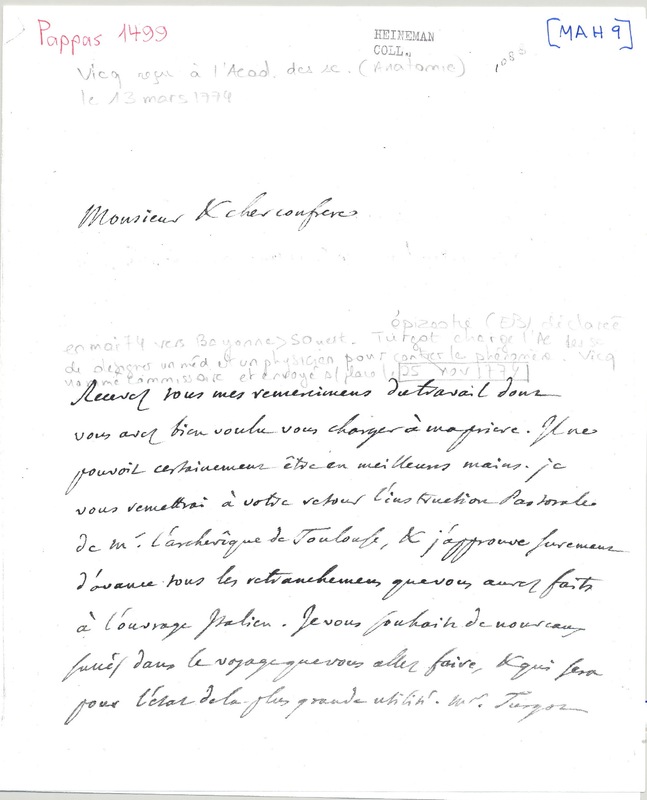 Pappas 1499
HEINEMAN
COLL.,
[MAH9]
Vicq reçu à l'Acad. des sc. (Anatomie)
le 13 mars 1774
Monsieur & cher confrere
épizootie (EB) déclarée
en mai 74 vers Bayonne > SOuest. Turgot charge l'Ac des sc
de désigner un méd et un physicien pour contrer le phénomène. Vicq
nommé commissaire et envoyé s/ place le 25 nov 1774
Recevez tous mes remercimens du travail dont
vous avez bien voulu vous charger à ma priere. Il ne
pouvoit certainement être en meilleures mains. je
vous remettrai à votre retour l'instruction Pastorale
de mr. l'archevêque de Toulouse, & j'approuve surement
d'avance tous les retranchemens que vous aurez faits
à l'ouvrage Italien. Je vous souhaite de nouveaux
succès dans le voyage que vous allez faire, & qui sera
pour l'état de la plus grande utilité. mr. Turgot